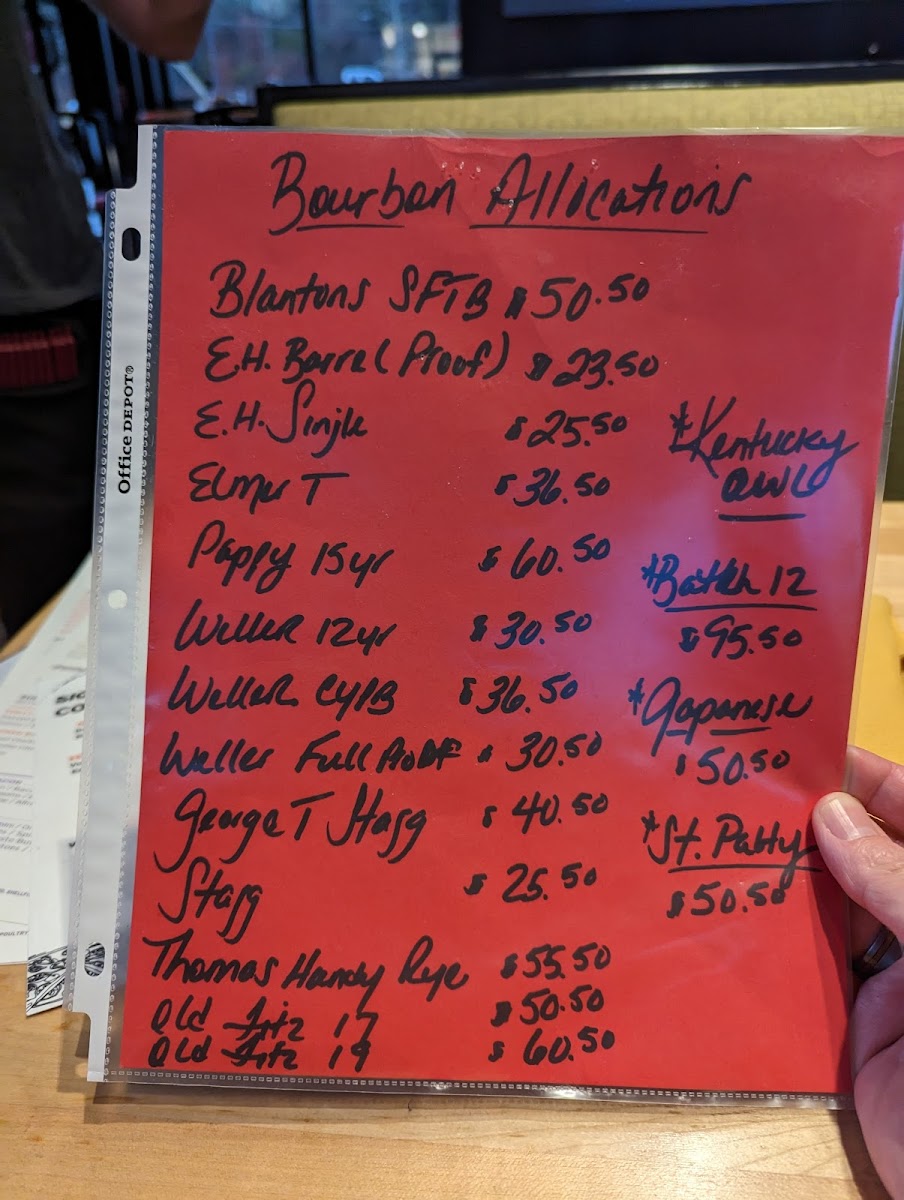 Bourbon Allocations
Blantons SFTB $50.50
E.H. Barrel (Proof) $23.50
E.H. Single $25.50
Elmer T $36.50
Pappy 15yr $60.50
Weller 12yr $30.50
Weller CYPB $36.50
Weller Full Proof $30.50
George T Stagg $40.50
Stagg $25.50
Thomas Handy Rye $55.50
Old Fitz 17 $50.50
Old Fitz 19 $60.50
*Kentucky
OWL
*Batch 12
$95.50
*Japanese
$50.50
*St. Patty
$50.50
Office DEPOT®